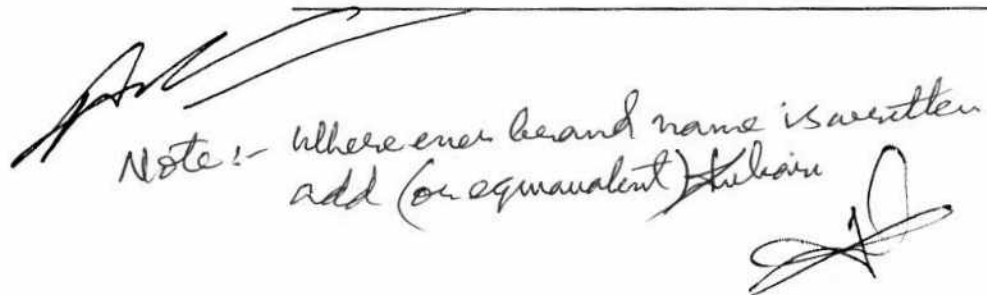 Note :- Where ever brand name is written
add (or equivalent)